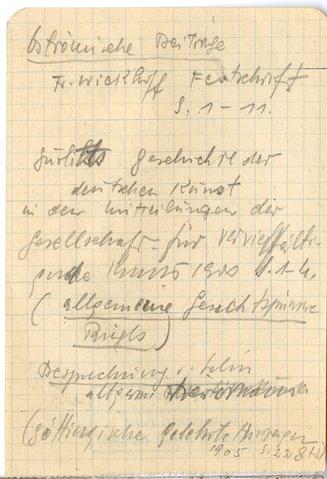 Oströmische Beiträge
Fr. Wickhoff Festschrift
S. 1 – 11.
Gurlitts Geschichte der
deutschen Kunst
in den Mitteilungen der
Gesellschaft für vervielfälti-
gende Kunst 1903 S. 1-4.
(allgemeine Gesichtspunkte
Riegls)
Besprechung v.
(göttingische gelehrte Anzeigen
1905 S.